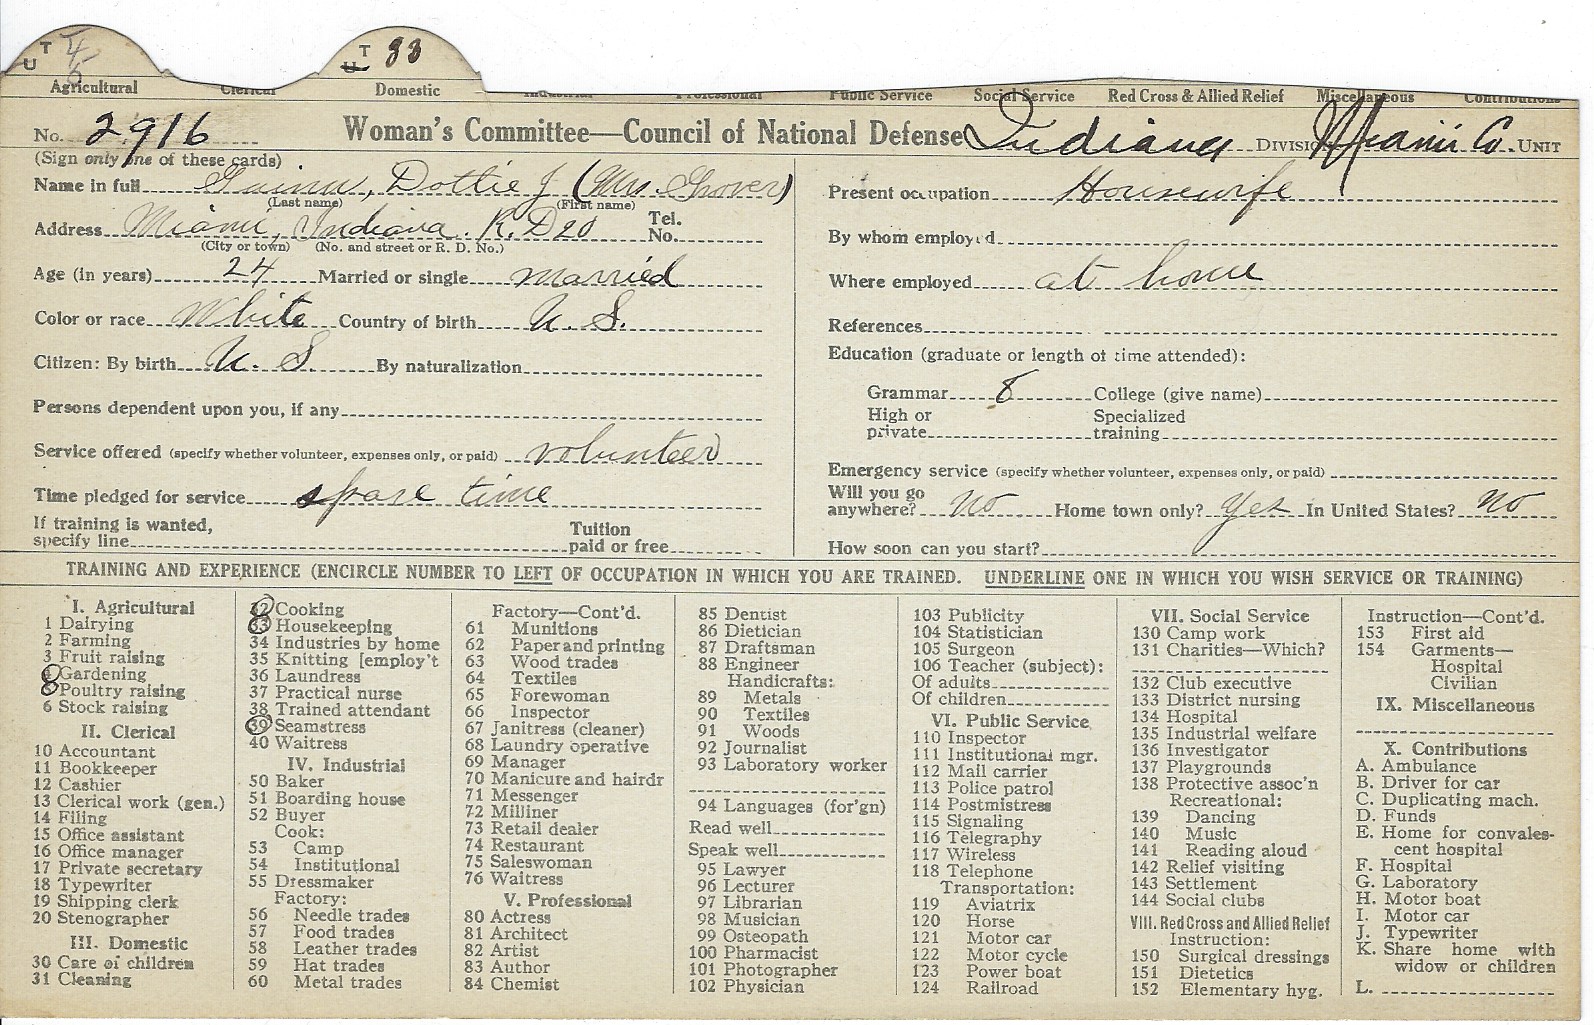 T 4 T 33
U 5 U
Agricultural Clerical Domestic Industrial Professional Public Service Social Service Red Cross & Allied Relief Miscellaneous Contributions
No. 2916 Woman's Committee—Council of National Defense Indiana DIVISION Miami Co. UNIT
(Sign only one of these cards)
Name in full Dottie J (Mrs. Grover)
(Last name) (First name)
Address Miami, Indiana. R. D 20 Tel. No.
(City or town) (No. and street or R. D. No.)
Age (in years) 24 Married or single married
Color or race White Country of birth U. S.
Citizen: By birth U. S. By naturalization
Persons dependent upon you, if any
Service offered (specify whether volunteer, expenses only, or paid) volunteer
Time pledged for service spare time
If training is wanted, specify line Tuition paid or free
Present occupation Housewife
By whom employed
Where employed at home
References
Education (graduate or length of time attended):
Grammar 8 College (give name)
High or private Specialized training
Emergency service (specify whether volunteer, expenses only, or paid)
Will you go anywhere? No Home town only? Yes In United States? No
How soon can you start?
TRAINING AND EXPERIENCE (ENCIRCLE NUMBER TO LEFT OF OCCUPATION IN WHICH YOU ARE TRAINED. UNDERLINE ONE IN WHICH YOU WISH SERVICE OR TRAINING)
I. Agricultural
1 Dairying
2 Farming
3 Fruit raising
4 Gardening
5 Poultry raising
6 Stock raising
II. Clerical
10 Accountant
11 Bookkeeper
12 Cashier
13 Clerical work (gen.)
14 Filing
15 Office assistant
16 Office manager
17 Private secretary
18 Typewriter
19 Shipping clerk
20 Stenographer
III. Domestic
30 Care of children
31 Cleaning
32 Cooking
33 Housekeeping
34 Industries by home
35 Knitting [employ't
36 Laundress
37 Practical nurse
38 Trained attendant
39 Seamstress
40 Waitress
IV. Industrial
50 Baker
51 Boarding house
52 Buyer
Cook:
53 Camp
54 Institutional
55 Dressmaker
Factory:
56 Needle trades
57 Food trades
58 Leather trades
59 Hat trades
60 Metal trades
Factory—Cont'd.
61 Munitions
62 Paper and printing
63 Wood trades
64 Textiles
65 Forewoman
66 Inspector
67 Janitress (cleaner)
68 Laundry operative
69 Manager
70 Manicure and hairdr
71 Messenger
72 Milliner
73 Retail dealer
74 Restaurant
75 Saleswoman
76 Waitress
V. Professional
80 Actress
81 Architect
82 Artist
83 Author
84 Chemist
85 Dentist
86 Dietician
87 Draftsman
88 Engineer
Handicrafts:
89 Metals
90 Textiles
91 Woods
92 Journalist
93 Laboratory worker
94 Languages (for'gn)
Read well
Speak well
95 Lawyer
96 Lecturer
97 Librarian
98 Musician
99 Osteopath
100 Pharmacist
101 Photographer
102 Physician
103 Publicity
104 Statistician
105 Surgeon
106 Teacher (subject):
Of adults
Of children
VI. Public Service
110 Inspector
111 Institutional mgr.
112 Mail carrier
113 Police patrol
114 Postmistress
115 Signaling
116 Telegraphy
117 Wireless
118 Telephone
Transportation:
119 Aviatrix
120 Horse
121 Motor car
122 Motor cycle
123 Power boat
124 Railroad
VII. Social Service
130 Camp work
131 Charities—Which?
132 Club executive
133 District nursing
134 Hospital
135 Industrial welfare
136 Investigator
137 Playgrounds
138 Protective assoc'n
Recreational:
139 Dancing
140 Music
141 Reading aloud
142 Relief visiting
143 Settlement
144 Social clubs
VIII. Red Cross and Allied Relief
Instruction:
150 Surgical dressings
151 Dietetics
152 Elementary hyg.
Instruction—Cont'd.
153 First aid
154 Garments—
Hospital
Civilian
IX. Miscellaneous
X. Contributions
A. Ambulance
B. Driver for car
C. Duplicating mach.
D. Funds
E. Home for convales-
cent hospital
F. Hospital
G. Laboratory
H. Motor boat
I. Motor car
J. Typewriter
K. Share home with
widow or children
L.